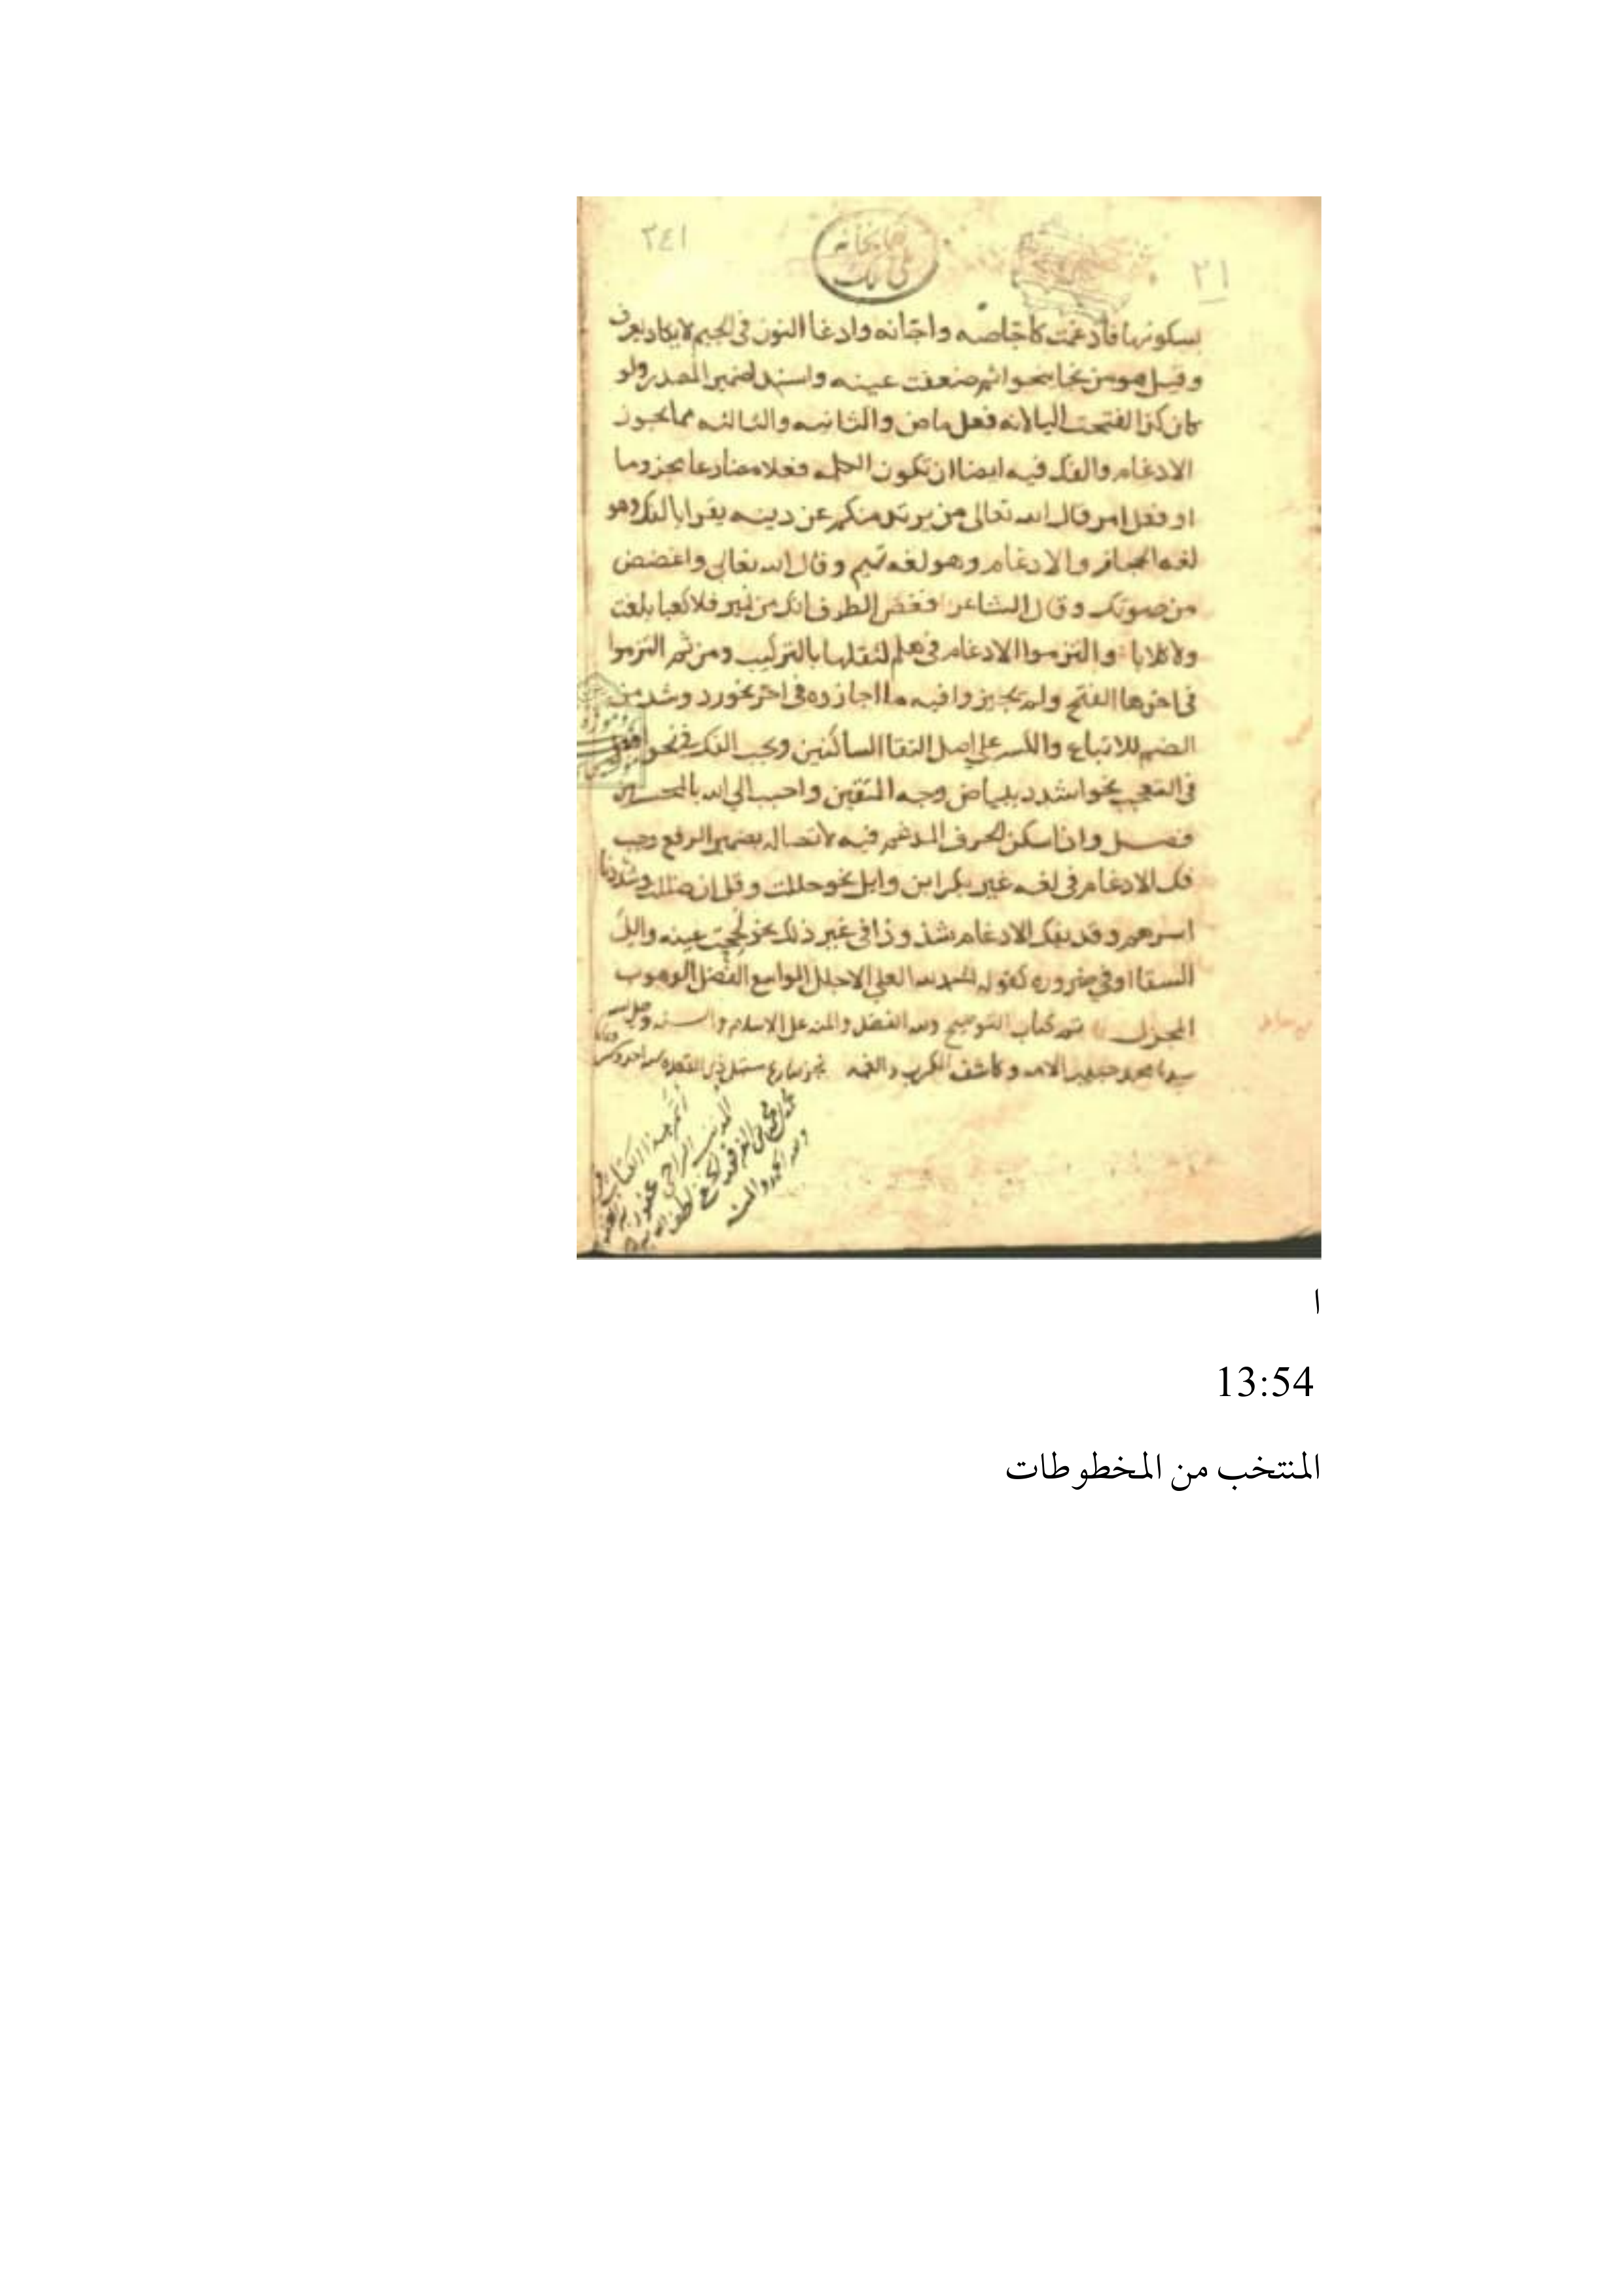 ٢١
٣٤١
بسكونها فادغمت كاجاصه واجانه وادغام النون في الجيم لا يكاد يعرف
وقيل هو من نجا ينجو ثم ضعفت عينه واسند لضمير المصدر ولو
كان كذا لفتحت اليا لانه فعل ماض والثانيه والثالثه مما يجوز
الادغام والفك فيه ايضا ان تكون الكلمه فعلا مضارعا مجزوما
او فعل امر قال الله تعالى من يرتد منكم عن دينه يقرا بالفك وهو
لغه الحجاز والادغام وهو لغه تميم وقال الله تعالى واغضض
من صوتك وقال الشاعر فغض الطرف انك من نمير فلا كعبا بلغت
ولا كلابا والتزموا الادغام في هلم لثقلها بالتركيب ومن ثم التزموا
في اخرها الفتح ولم يجيزوا فيه ما اجازوه في اخر نحو رد وشد من
الضم للاتباع والكسر على اصل التقا الساكنين ويجب الفك في نحو افعل
في التعجب نحو اشدد ببياض وجه المتقين واحبب الى الله بالمحسنين
فصل واذا سكن الحرف المدغم فيه لاتصاله بضمير الرفع وجب
فك الادغام في لغه غير بكر ابن وايل نحو حللت وقل ان ضللت وشددنا
اسرهم وقد يفك الادغام شذوذا في غير ذلك نحو لححت عينه والل
السقا او في ضروره كقوله الحمد لله العلي الاجلل الواسع الفضل الوهوب
المجزل تم كتاب التوضيح ولله الفضل والمنه على الاسلام والسنه وصلى الله
سيدنا محمد الامه وكاشف الكرب والغمه
اتم هذا الكتاب
المذنب الراجي عفو ربه
لطف الله
ولله الحمد والمنه
ا
13:54
المنتخب من المخطوطات